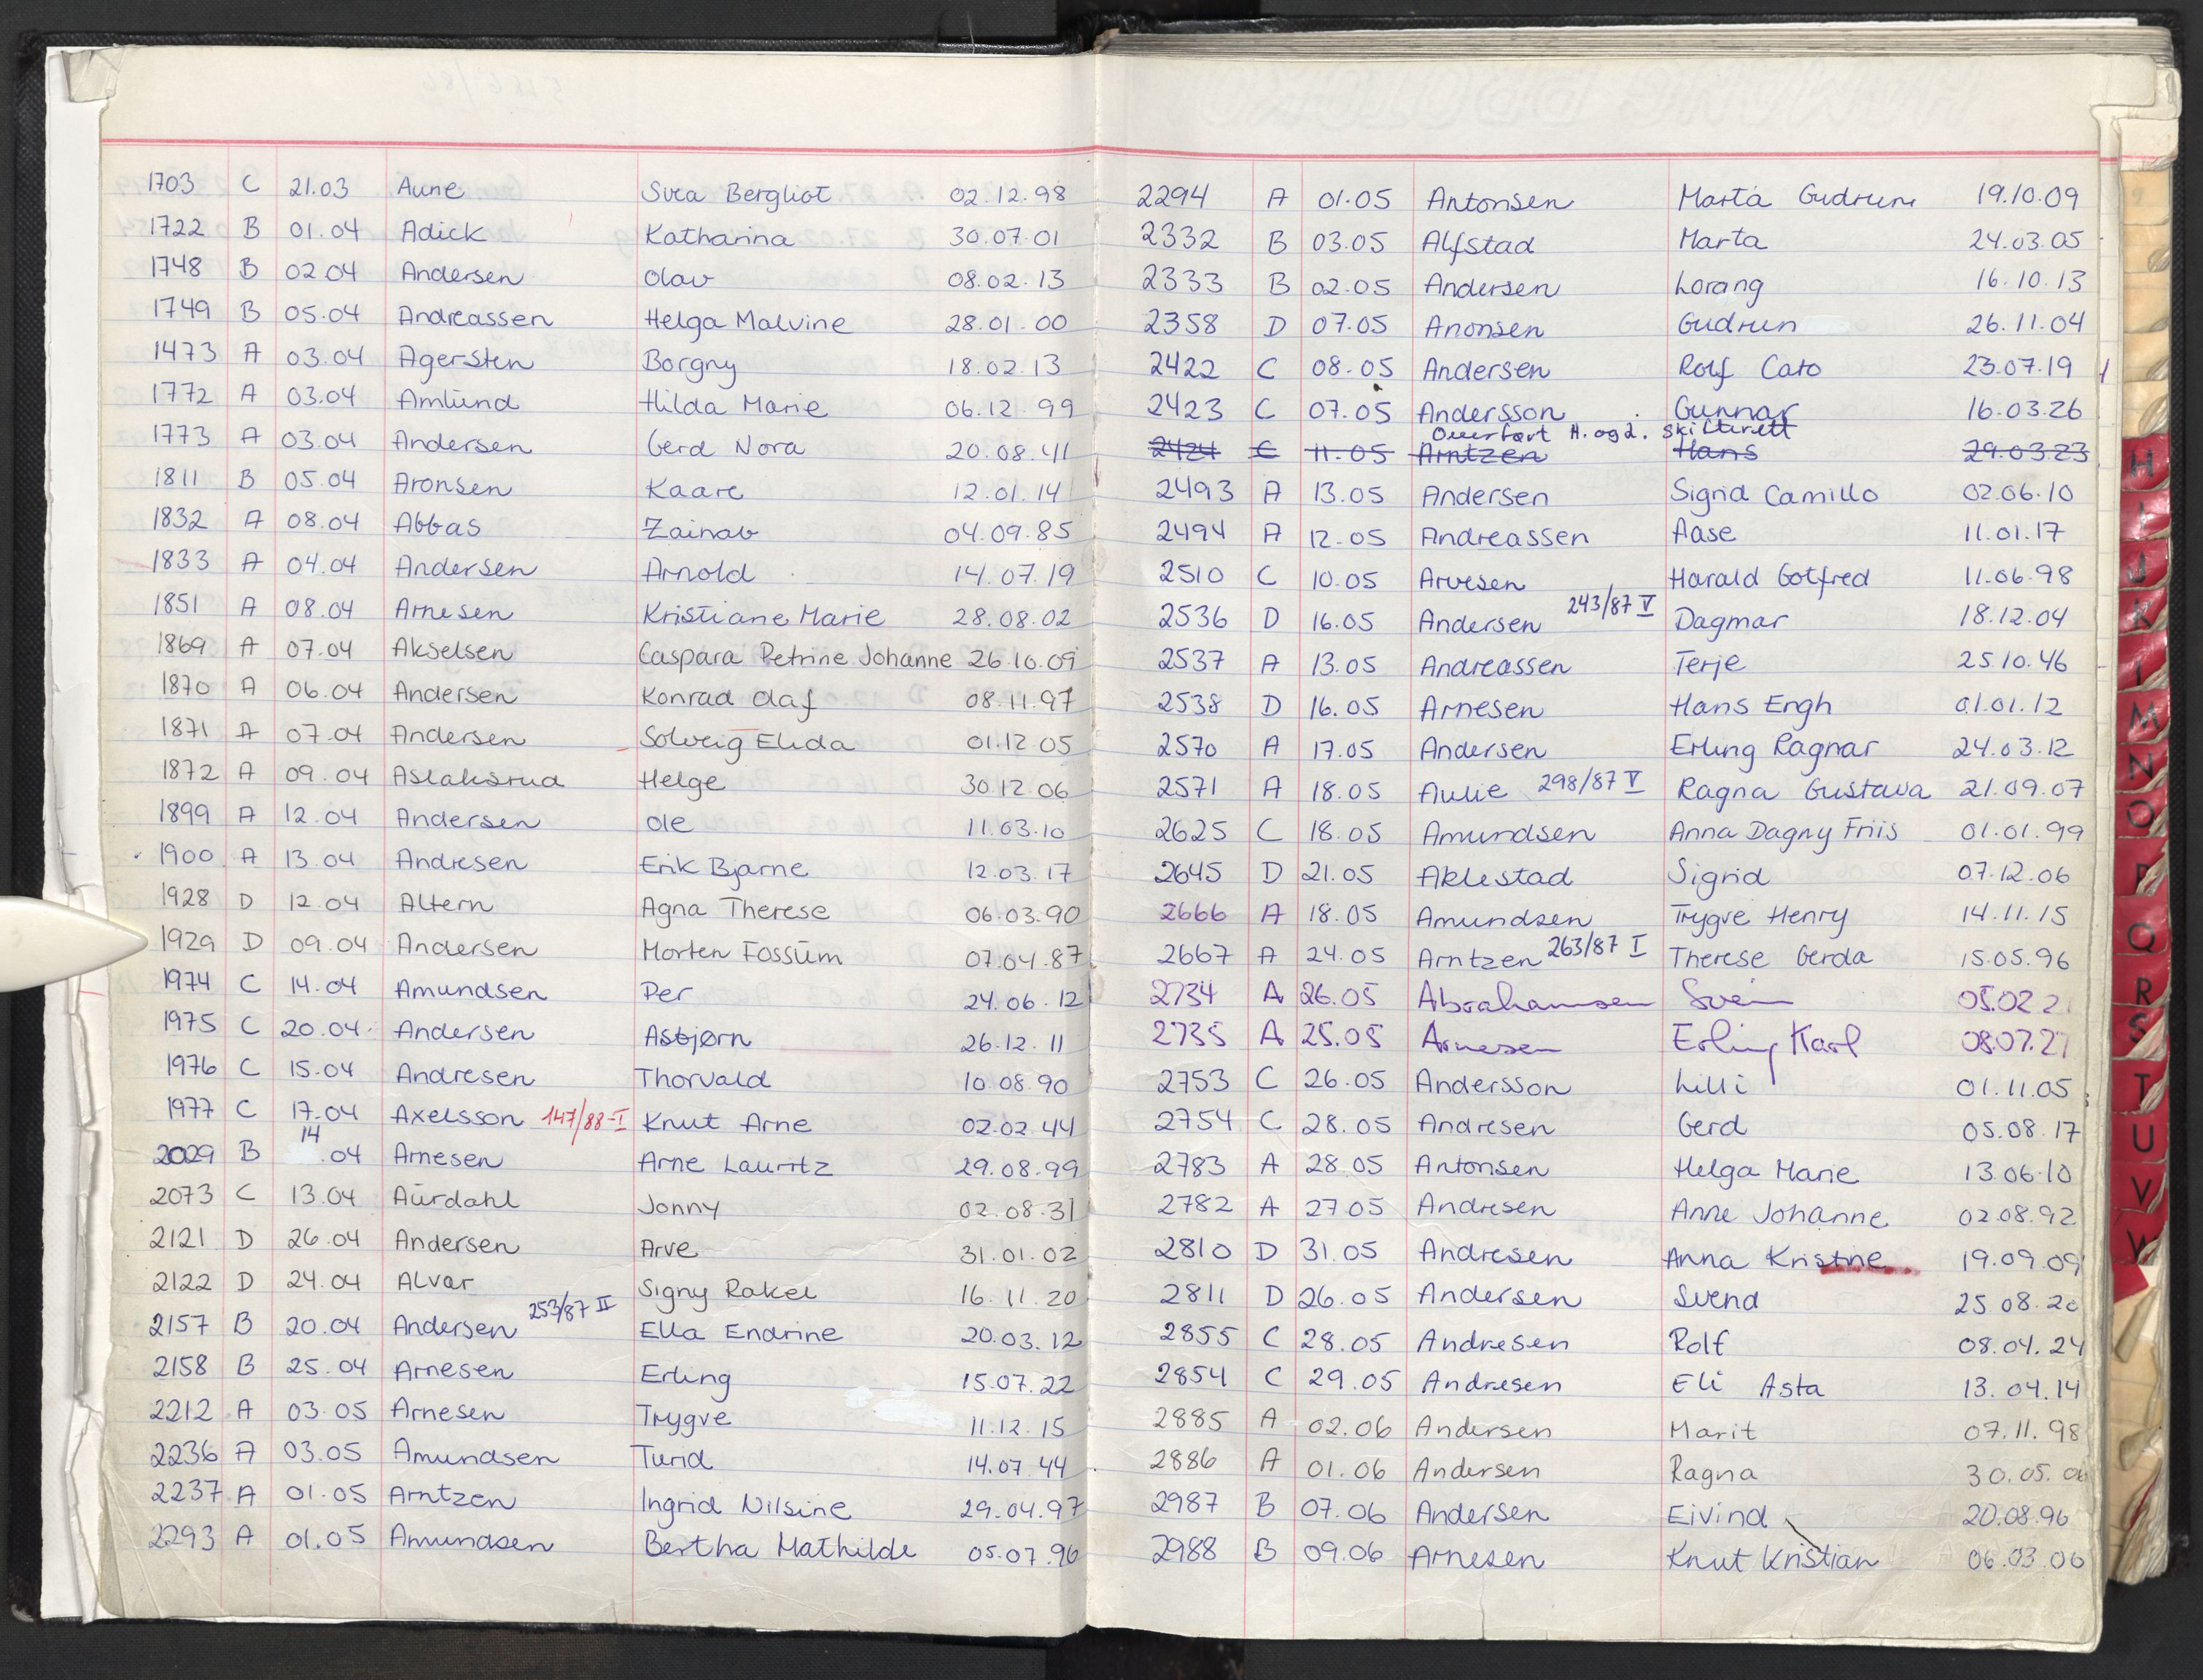 1703 C 21.03 Aune Svea Bergliot 02.12.98
1722 B 01.04 Adick Katharina 30.07.01
1748 B 02.04 Andersen Olav 08.02.13
1749 B 05.04 Andreassen Helga Malvine 28.01.00
1473 A 03.04 Agersten Borgny 18.02.13
1772 A 03.04 Amlund Hilda Marie 06.12.99
1773 A 03.04 Andersen Gerd Nora 20.08.41
1811 B 05.04 Aronsen Kaare 12.01.14
1832 A 08.04 Abbas Zainab 04.09.85
1833 A 04.04 Andersen Arnold 14.07.19
1851 A 08.04 Arnesen Kristiane Marie 28.08.02
1869 A 07.04 Akselsen Caspara Petrine Johanne 26.10.09
1870 A 06.04 Andersen Konrad Olaf 08.11.97
1871 A 07.04 Andersen Solveig Elida 01.12.05
1872 A 09.04 Aslaksrud Helge 30.12.06
1899 A 12.04 Andersen Ole 11.03.10
1900 A 13.04 Andresen Erik Bjarne 12.03.17
1928 D 12.04 Altern Agna Therese 06.03.90
1929 D 09.04 Andersen Morten Fossum 07.04.87
1974 C 14.04 Amundsen Per 24.06.12
1975 C 20.04 Andersen Asbjørn 26.12.11
1976 C 15.04 Andresen Thorvald 10.08.90
1977 C 17.04 Axelsson 147/88-I Knut Arne 02.02.44
2029 B 14.04 Arnesen Arne Lauritz 29.08.99
2073 C 13.04 Aurdahl Jonny 02.08.31
2121 D 26.04 Andersen Arve 31.01.02
2122 D 24.04 Alvar Signy Rakel 16.11.20
2157 B 20.04 Andersen 253/87 II Ella Endrine 20.03.12
2158 B 25.04 Arnesen Erling 15.07.22
2212 A 03.05 Arnesen Trygve 11.12.15
2236 A 03.05 Amundsen Turid 14.07.44
2237 A 01.05 Arntzen Ingrid Nilsine 29.04.97
2293 A 01.05 Amundsen Bertha Mathilde 05.07.96
2294 A 01.05 Antonsen Marta Gudrun 19.10.09
2332 B 03.05 Alfstad Marta 24.03.05
2333 B 02.05 Andersen Lorang 16.10.13
2358 D 07.05 Anonsen Gudrun 26.11.04
2422 C 08.05 Andersen Rolf Cato 23.07.19
2423 C 07.05 Andersson Gunnar 16.03.26
Overført H. og L. skifterett
2424 C 11.05 Arntzen Hans 29.03.23
2493 A 13.05 Andersen Sigrid Camillo 02.06.10
2494 A 12.05 Andreassen Aase 11.01.17
2510 C 10.05 Arvesen Harald Gotfred 11.06.98
2536 D 16.05 Andersen 243/87 V Dagmar 18.12.04
2537 A 13.05 Andreassen Terje 25.10.46
2538 D 16.05 Arnesen Hans Engh 01.01.12
2570 A 17.05 Andersen Erling Ragnar 24.03.12
2571 A 18.05 Aulie 298/87 V Ragna Gustava 21.09.07
2625 C 18.05 Amundsen Anna Dagny Friis 01.01.99
2645 D 21.05 Aklestad Sigrid 07.12.06
2666 A 18.05 Amundsen Trygve Henry 14.11.15
2667 A 24.05 Arntzen 263/87 I Therese Gerda 15.05.96
2734 A 26.05 Abrahamsen Svein 05.02.2
2735 A 25.05 Arnesen Erling Karl 08.07.27
2753 C 26.05 Andersson Lilli 01.11.05
2754 C 28.05 Andresen Gerd 05.08.17
2783 A 28.05 Antonsen Helga Marie 13.06.10
2782 A 27.05 Andresen Anne Johanne 02.08.92
2810 D 31.05 Andresen Anna Kristine 19.09.09
2811 D 26.05 Andersen Svend 25.08.20
2855 C 28.05 Andresen Rolf 08.04.24
2854 C 29.05 Andresen Eli Asta 13.04.14
2885 A 02.06 Andersen Marit 07.11.98
2886 A 01.06 Andersen Ragna 30.05.06
2987 B 07.06 Andersen Eivind 20.08.96
2988 B 09.06 Arnesen Knut Kristian 06.03.06
H
I
J
K
L
M
N
O
P
Q
R
S
T
U
V
W